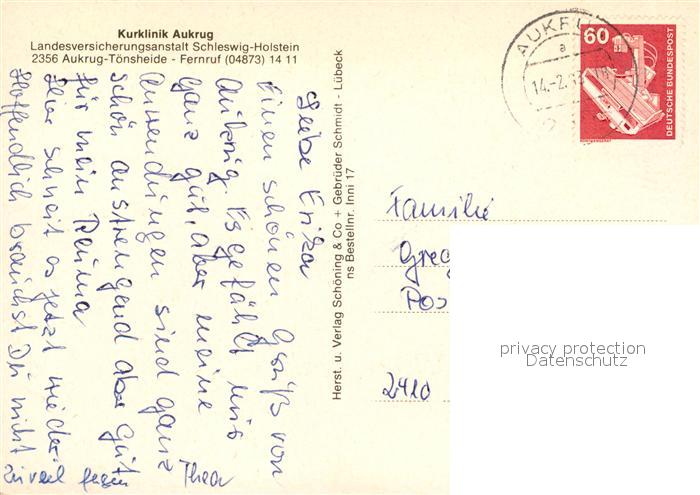 Kurklinik Aukrug
Landesversicherungsanstalt Schleswig-Holstein
2356 Aukrug-Tönsheide - Fernruf (04873) 14 11
Liebe Erika
Einen schönen Gruß von
Aukrug. Es gefällt mir
ganz gut, aber meine
Anwendungen sind ganz
schön anstrengend aber gut
für mein Rheuma
Hier schneit es jetzt wieder.
Hoffendlich brauchst Du nicht
zuviel fegen
Thea
Herst. u. Verlag Schöning & Co + Gebrüder Schmidt - Lübeck
ns Bestellnr. Inni 17
AUKRU
a
14.-2.
60
DEUTSCHE BUNDESPOST
Familie
Greg
Pos
2410
privacy protection
Datenschutz